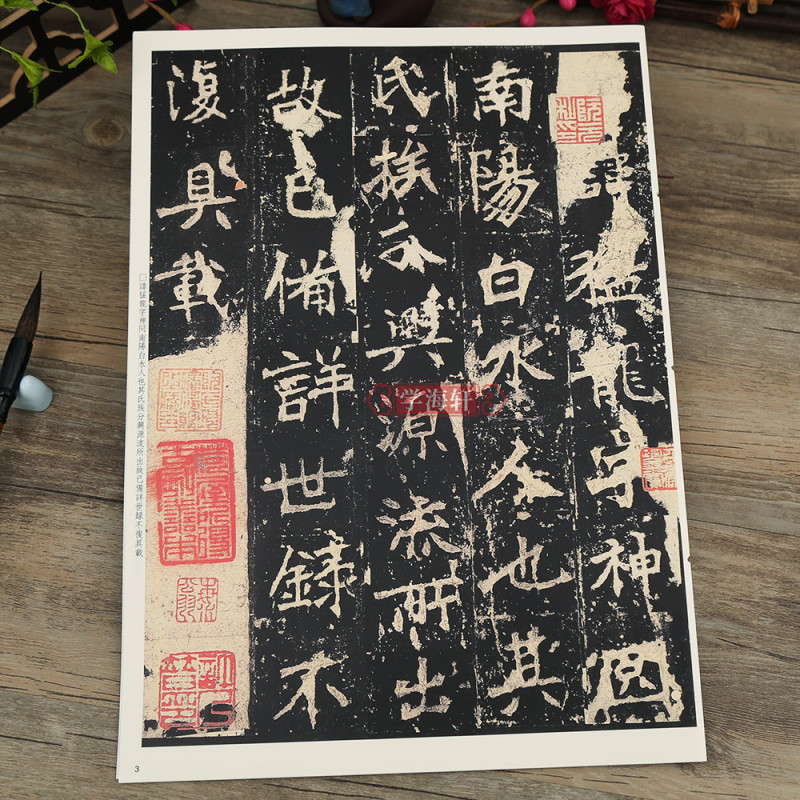 諱猛龍字神冏
南陽白水人也其
氏族分興源流所出
故已備詳世録不
復具載
学海轩
□諱猛龍字神冏南陽白水人也其氏族分興源流所出故已備詳世録不復具載
3